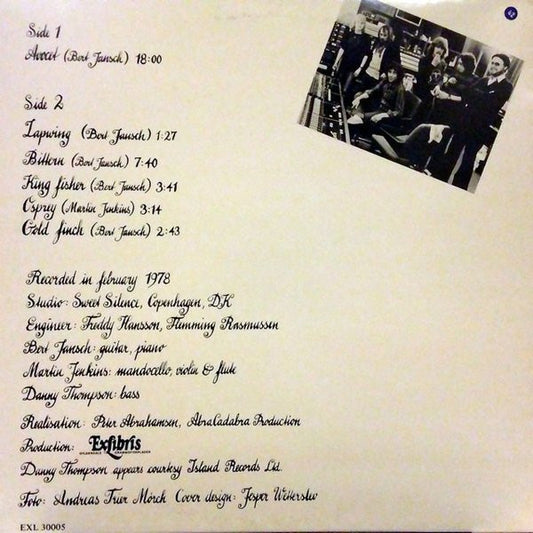 Side 1
Avocet (Bert Jansch) 18:00
Side 2
Lapwing (Bert Jansch) 1:27
Bittern (Bert Jansch) 7:40
King fisher (Bert Jansch) 3:41
Osprey (Martin Jenkins) 3:14
Gold finch (Bert Jansch) 2:43
Recorded in february 1978
Studio: Sweet Silence, Copenhagen, DK
Engineer: Freddy Hansson, Flemming Rasmussen
Bert Jansch: guitar, piano
Martin Jenkins: mandocello, violin & flute
Danny Thompson: bass
Realisation: Peter Abrahamsen, AbraCadabra Production
Production: Exlibris
Danny Thompson appears courtesy Island Records Ltd.
Foto: Andreas Trier Mörch Cover design: Jesper
EXL 30005